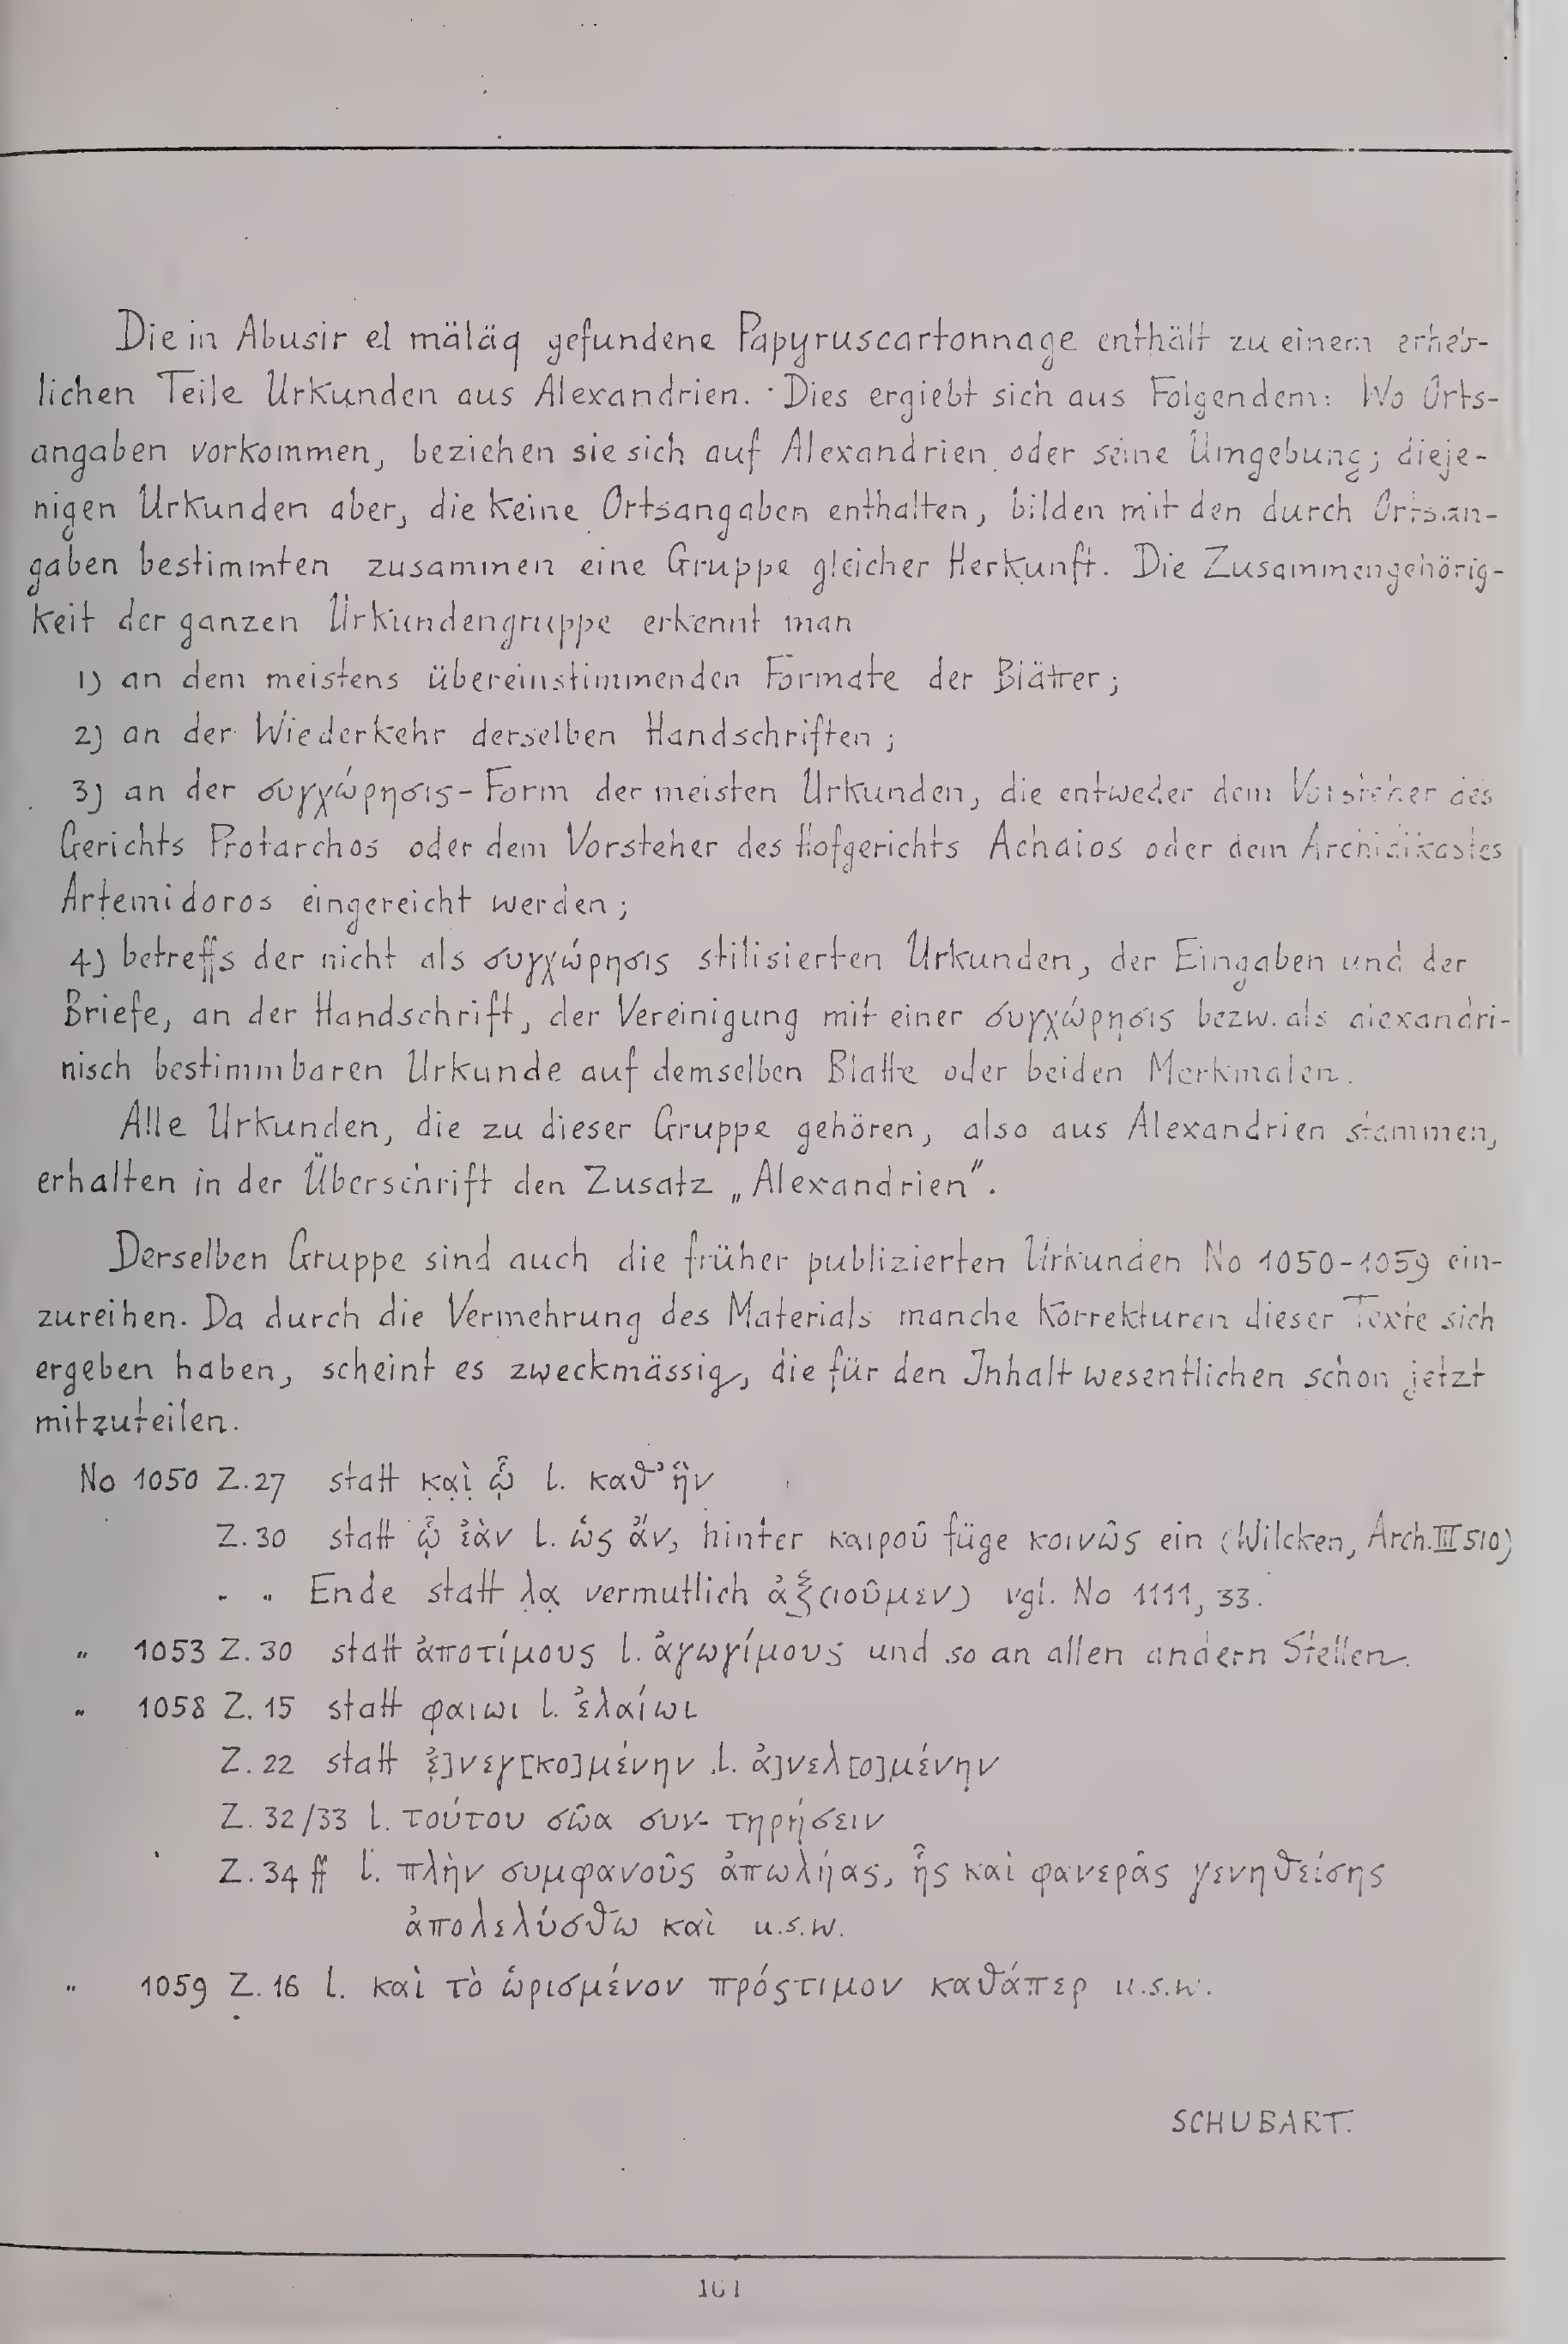 Die in Abusir el mäläq gefundene Papyruscartonnage enthält zu einem erheb-
lichen Teile Urkunden aus Alexandrien. Dies ergiebt sich aus Folgendem: Wo Orts-
angaben vorkommen, beziehen sie sich auf Alexandrien oder seine Umgebung; dieje-
nigen Urkunden aber, die keine Ortsangaben enthalten, bilden mit den durch Ortsan-
gaben bestimmten zusammen eine Gruppe gleicher Herkunft. Die Zusammengehörig-
keit der ganzen Urkundengruppe erkennt man
1) an dem meistens übereinstimmenden Formate der Blätter;
2) an der Wiederkehr derselben Handschriften;
3) an der συγχώρησις-Form der meisten Urkunden, die entweder dem Vorsteher des
Gerichts Protarchos oder dem Vorsteher des Hofgerichts Achaios oder dem Archidikastes
Artemidoros eingereicht werden;
4) betreffs der nicht als συγχώρησις stilisierten Urkunden, der Eingaben und der
Briefe, an der Handschrift, der Vereinigung mit einer συγχώρησις bezw. als alexandri-
nisch bestimmbaren Urkunde auf demselben Blatte oder beiden Merkmalen.
Alle Urkunden, die zu dieser Gruppe gehören, also aus Alexandrien stammen,
erhalten in der Überschrift den Zusatz „Alexandrien".
Derselben Gruppe sind auch die früher publizierten Urkunden No 1050-1059 ein-
zureihen. Da durch die Vermehrung des Materials manche Korrekturen dieser Texte sich
ergeben haben, scheint es zweckmässig, die für den Inhalt wesentlichen schon jetzt
mitzuteilen.
No 1050 Z.27 statt κ̣α̣ὶ̣ ᾧ̣ l. καθ' ἣν
Z.30 statt ᾧ̣ ἐὰν l. ὡς ἄν, hinter καιροῦ füge κοινῶς ein (Wilcken, Arch. III 510)
" " Ende statt λ̣α̣ vermutlich ἀ̣ξ̣(ιοῦμεν) vgl. No 1111, 33.
" 1053 Z. 30 statt ἀποτίμους l. ἀγωγίμους und so an allen andern Stellen.
" 1058 Z. 15 statt φαιωι l. ἐλαίωι
Z. 22 statt ἐ̣]νεγ[κο]μένην l. ἀ̣]νελ[ο]μένην
Z. 32/33 l. τούτου σῶα συν- τηρήσειν
Z. 34 ff l. πλὴν συμφανοῦς ἀπωλήας, ἧς καὶ φανερᾶς γενηθείσης
ἀπολελύσθω καὶ u.s.w.
" 1059 Z. 16 l. καὶ τὸ ὡρισμένον πρόςτιμον καθάπερ u.s.w.
SCHUBART.